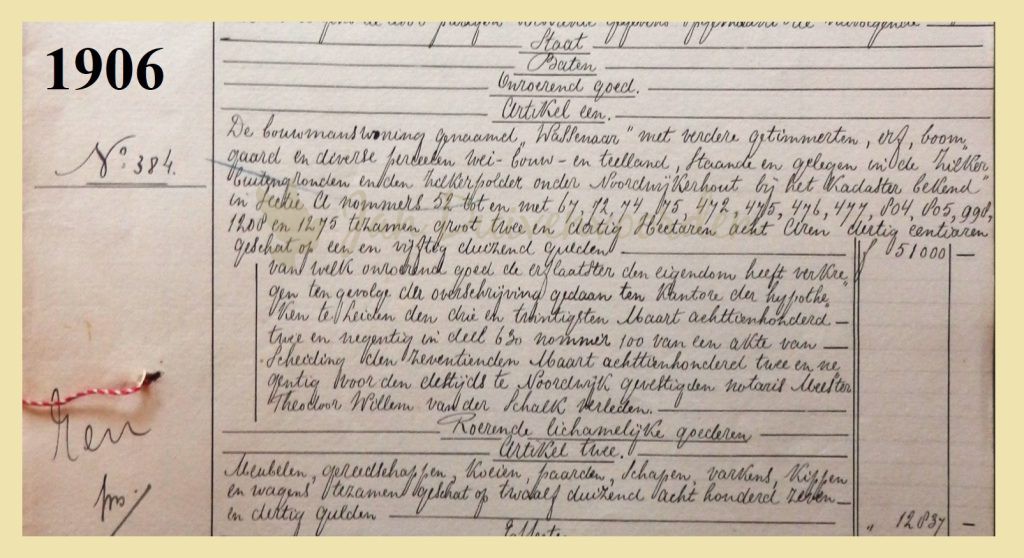 1906
Staat
Baten
Onroerend goed.
Artikel een.
No. 384.
De bouwmanswoning genaamd „Wassenaar" met verdere getimmerten, erf, boom„
gaard en diverse perceelen wei- bouw- en teelland, staande en gelegen in de Zilker
buitengronden en den Zilkerpolder onder Noordwijkerhout bij het Kadaster bekend
in Sectie A nommers 52 tot en met 67, 72, 74, 75, 472, 475, 476, 477, 804, 805, 998,
1208 en 1275 tezamen groot twee en dertig Hectaren acht Aren dertig centiaren
geschat op een en vijftig duizend gulden f 51000 —
van welk onroerend goed de erflaatster den eigendom heeft verkre„
gen ten gevolge der overschrijving gedaan ten Kantore der hypothe„
ken te Leiden den drie en twintigsten Maart achttienhonderd
twee en negentig in deel 630 nommer 100 van een akte van
Scheiding den zeventienden Maart achttienhonderd twee en ne„
gentig voor den destijds te Noordwijk gevestigden notaris Meester
Theodoor Willem van der Schalk verleden.
Roerende lichamelijke goederen
Artikel twee.
Meubelen, gereedschappen, koeien, paarden, schapen, varkens, kippen
en wagens tezamen geschat op twaalf duizend acht honderd zeven
en dertig gulden „ 12837 —
Effecten